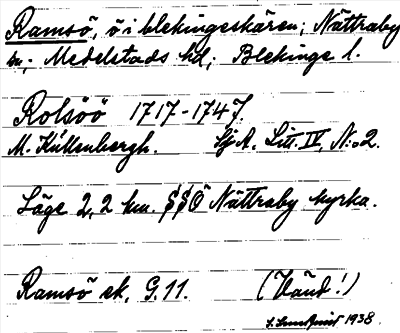 Ramsö, ö i blekingeskären; Nättraby
sn; Medelstads hd; Blekinge l.
Rolsöö 1717-1747.
M. Kullenbergh. Sj A. Litt. IV, No. 2.
Läge 2,2 km. S S Ö Nättraby kyrka.
Ramsö ek. G. 11. (Vänd!)
S. Lundquist 1938.